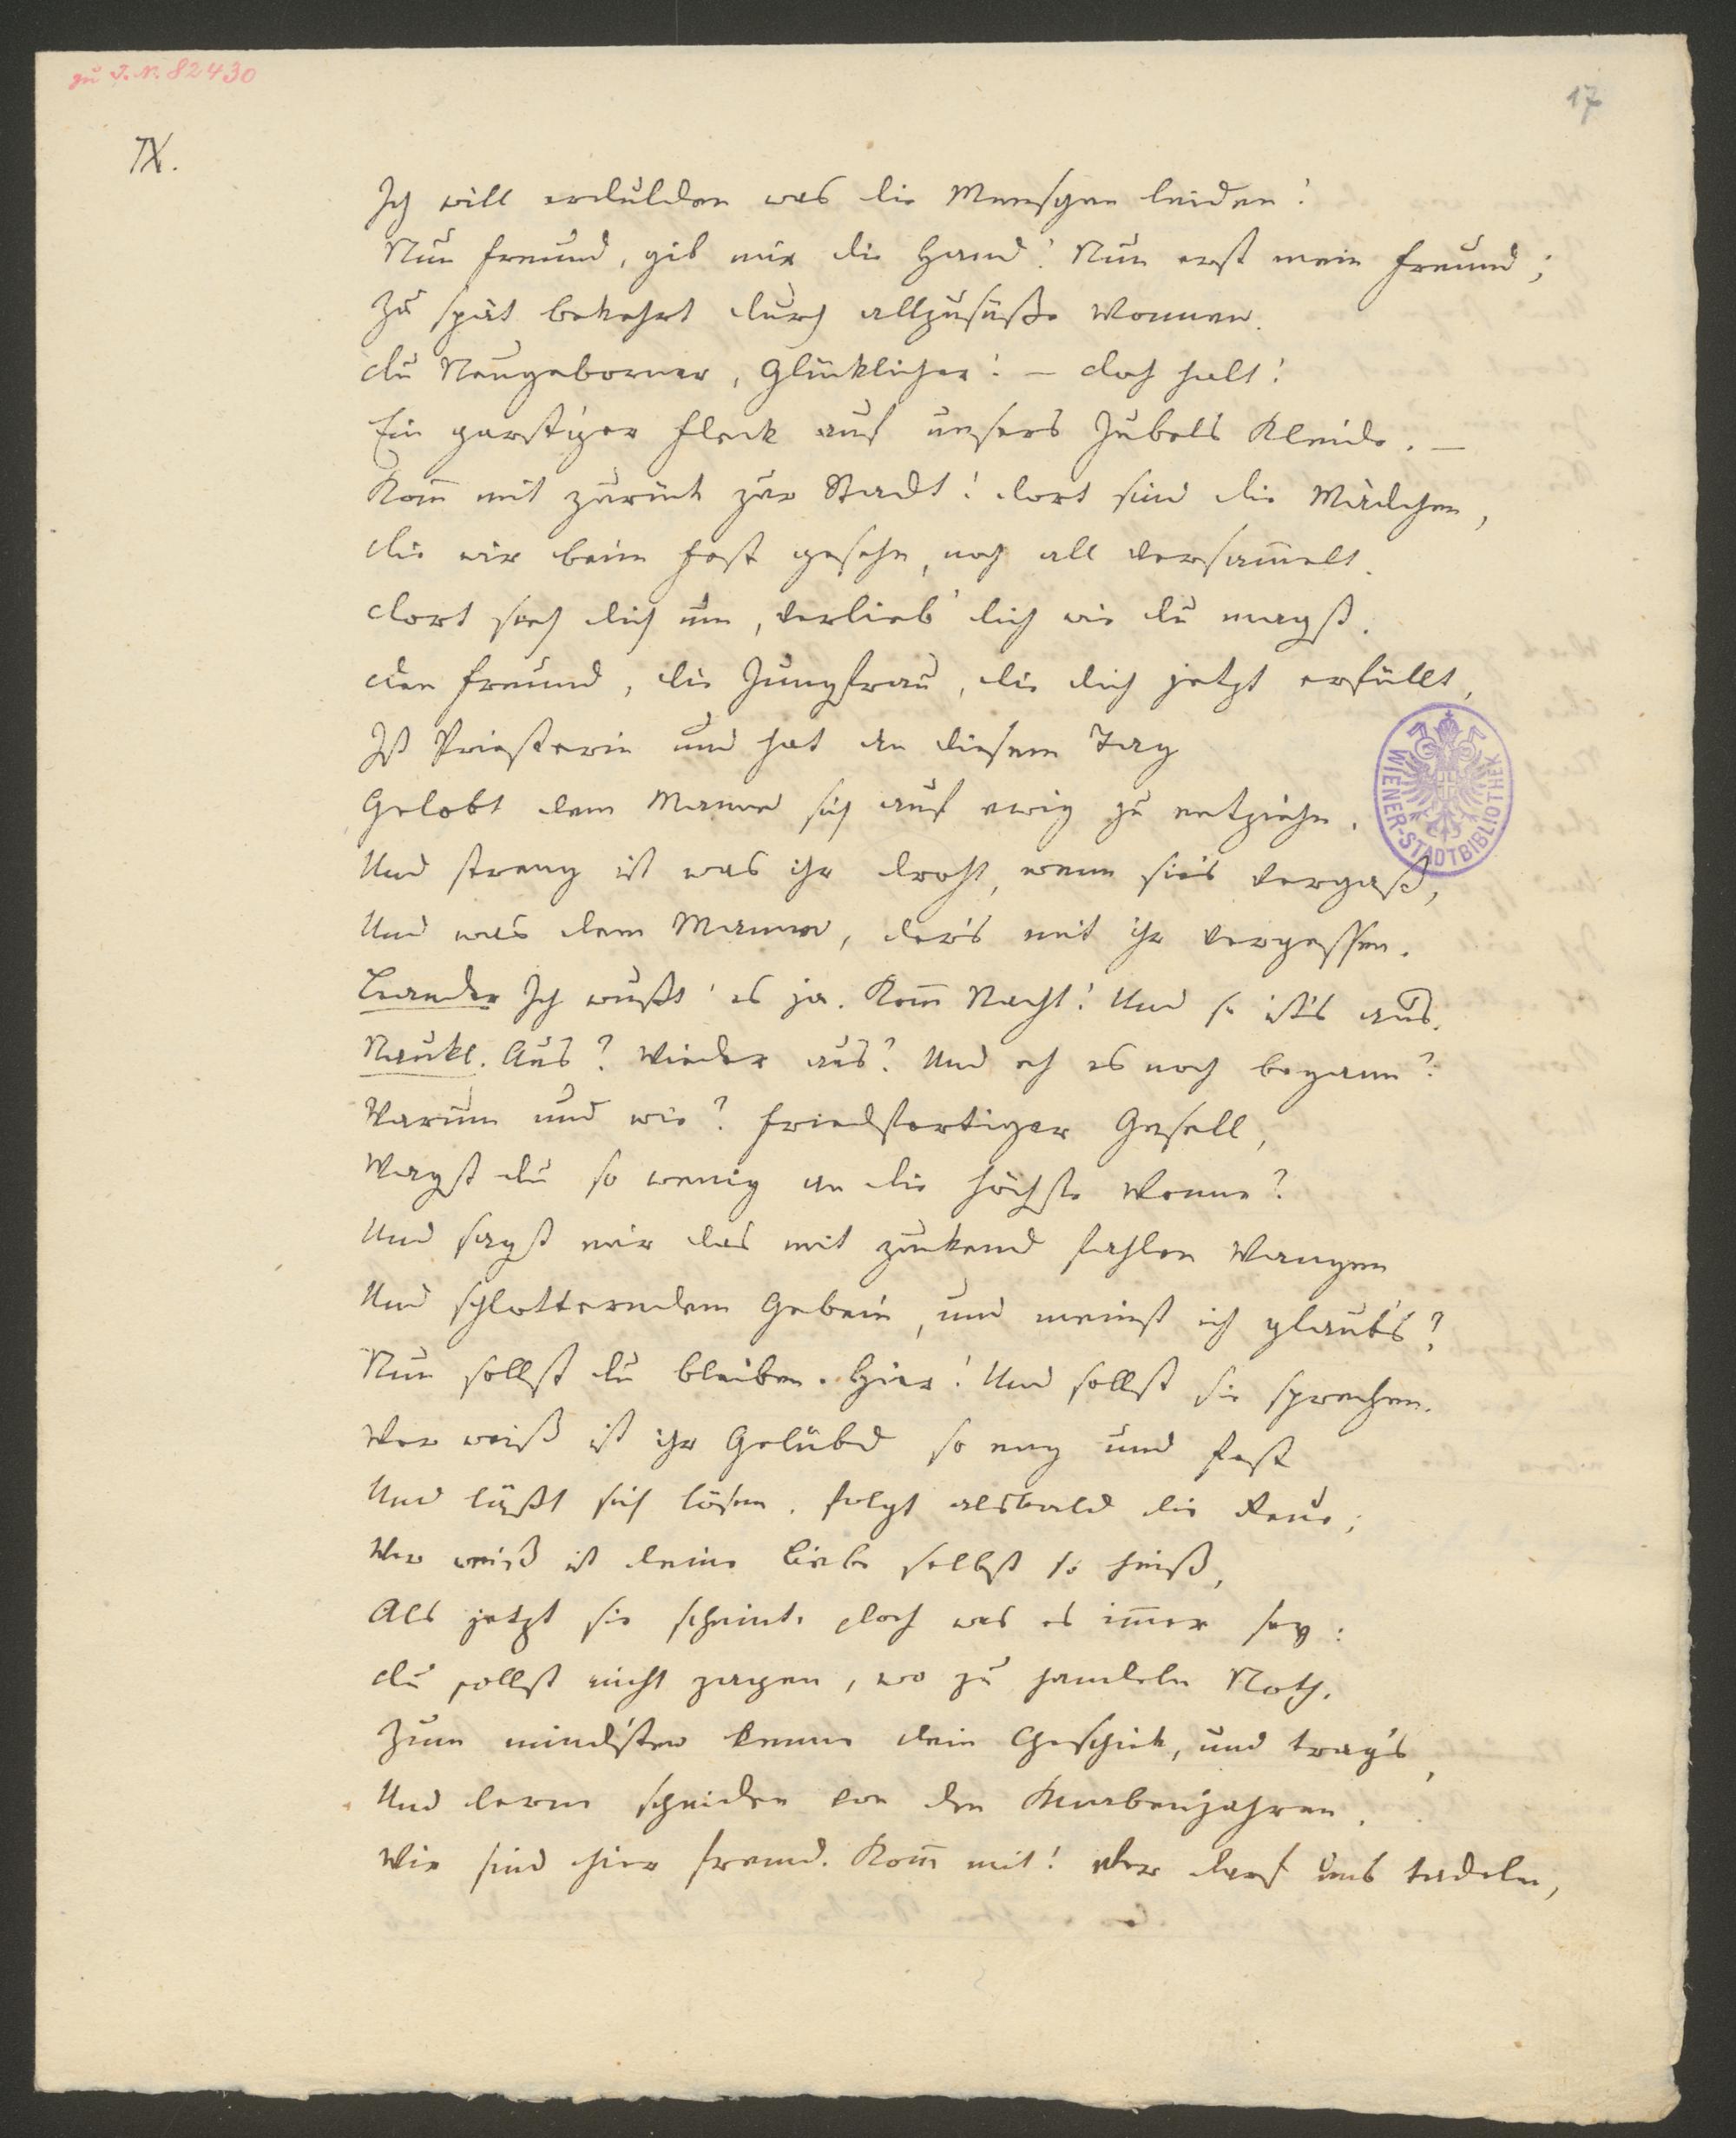 zu J. N. 82430
17
IX.
Ich will erdulden was die Menschen leiden!
Nun Freund, gib mir die Hand! Nun erst mein Freund;
Zu spät bekehrt durch allzusüße Wonnen.
Du Neugeborner, Glücklicher! – Doch halt!
Ein garst'ger Fleck auf unsers Jubels Kleide. –
Kom̄ mit zurück zur Stadt! Dort sind die Mädchen,
Die wir beim Fest gesehn, noch all versam̄elt.
Dort sieh dich um, verlieb' dich wie du magst.
Den Freund, die Jungfrau, die dich jetzt erfüllt,
Ist Priesterin und hat an diesem Tag
Gelobt dem Manne sich auf ewig zu entziehn.
Und streng ist was ihr droht, wenn sie's vergaß,
Und was dem Manne, der's mit ihr vergessen.
Leander Ich wußt' es ja. Kom̄ Nacht! Und so ist's aus.
Naukl. Aus? Wieder aus? Und eh es noch begann?
Warum und wie? Friedfertiger Gesell,
Wagst du so wenig an die höchste Wonne?
Und sagst mir das mit zuckend fahlen Wangen
Und schlotterndem Gebein, und meinst ich glaub's?
Nun sollst du bleiben. Hier! Und sollst sie sprechen.
Wer weiß ist ihr Gelübd so eng und fest
Und läßt sich lösen. folgt alsbald die Reue;
Wer weiß ist deine Liebe selbst so heiß,
Als jetzt sie scheint. Doch was es im̄er sey:
Du sollst nicht zagen, wo zu handeln Noth.
Zum mind'sten kenne dein Geschick, und trag's,
Und lerne scheiden von den Knabenjahren.
Wir sind hier fremd. Kom̄ mit! Wer darf uns tadeln,
WIENER-STADTBIBLIOTHEK